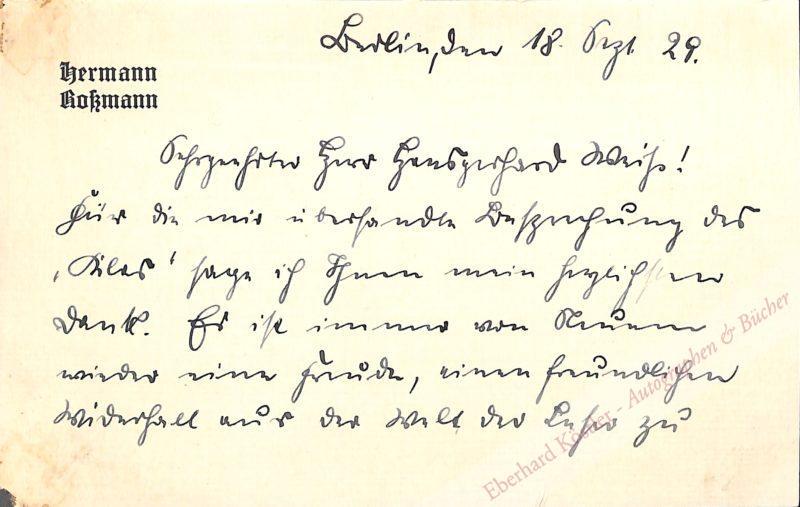 Berlin, den 18. Sept. 29.
Hermann
Roßmann
Sehrgeehrter Herr Hansgerhard Weiß!
Für die mir übersandte Besprechung des
‚Kilas' sage ich Ihnen mein herzlichsten
Dank. Es ist immer von Neuem
wieder eine Freude, einen freundlichen
Widerhall aus der Welt der Leser zu
Eberhard Köstler - Autographen & Bücher